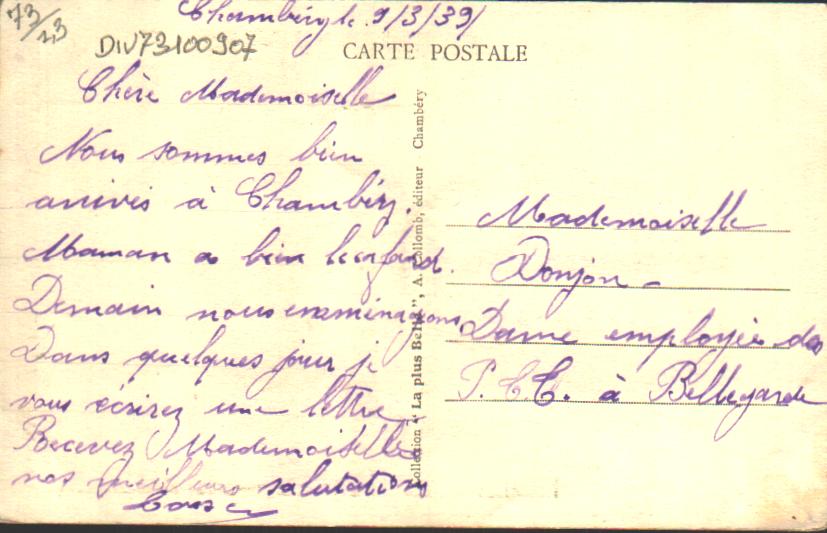 73/23
DIV73100907
Chambéry le 9/3/39/
CARTE POSTALE
Chère Mademoiselle
Nous sommes bien
arrivés à Chambéry.
Maman a bien
Demain nous
Dans quelques jour je
vous écrirez une lettre
Recevez Mademoiselle
nos meilleurs salutations
Collection "La plus Belle", A. Collomb, éditeur Chambéry
Mademoiselle
Donjon
Dame employée des
P.T.T. à Bellegarde